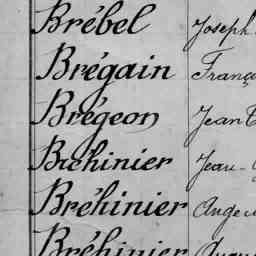 Brébel Joseph
Brégain
Brégeon Jean
Bréhinier Jean-
Bréhinier Ange
Bréhinier